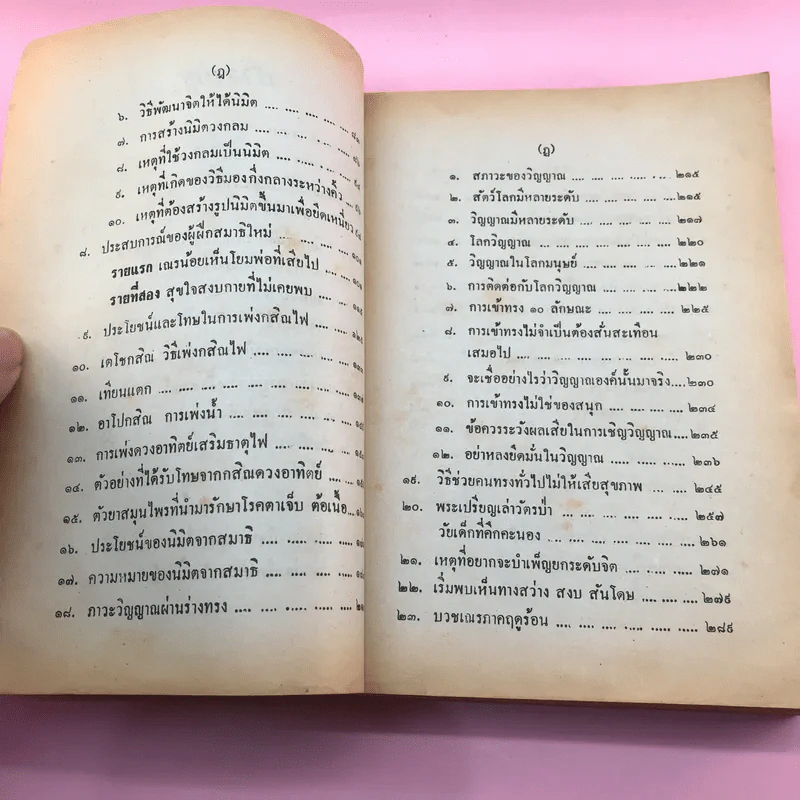 (ฎ)
๖. วิธีพัฒนาจิตให้ได้นิมิต .... .... .... .... ๘๑
๗. การสร้างนิมิตวงกลม .... .... .... ....
๘. เหตุที่ใช้วงกลมเป็นนิมิต .... .... .... ....
๙. เหตุที่เกิดของวิธีมองกึ่งกลางระหว่างคิ้ว
๑๐. เหตุที่ต้องสร้างรูปนิมิตขึ้นมาเพื่อยึดเหนี่ยว
๘. ประสบการณ์ของผู้ฝึกสมาธิใหม่ .... .... ....
รายแรก เณรน้อยเห็นโยมพ่อที่เสียไป .... ....
รายที่สอง สุขใจสงบกายที่ไม่เคยพบ .... ....
๙. ประโยชน์และโทษในการเพ่งกสิณไฟ .... ....
๑๐. เตโชกสิณ วิธีเพ่งกสิณไฟ .... .... ....
๑๑. เทียนแตก .... .... .... .... .... ....
๑๒. อาโปกสิณ การเพ่งน้ำ .... .... .... ....
๑๓. การเพ่งดวงอาทิตย์เสริมธาตุไฟ .... .... ....
๑๔. ตัวอย่างที่ได้รับโทษจากกสิณดวงอาทิตย์ .... ....
๑๕. ตัวยาสมุนไพรที่นำมารักษาโรคตาเจ็บ ต้อเนื้อ....
๑๖. ประโยชน์ของนิมิตจากสมาธิ .... .... ....
๑๗. ความหมายของนิมิตจากสมาธิ .... .... ....
๑๘. ภาวะวิญญาณผ่านร่างทรง .... .... .... ....
(ฏ)
๑. สภาวะของวิญญาณ .... .... .... .... ๒๑๕
๒. สัตว์โลกมีหลายระดับ .... .... .... ....๒๑๕
๓. วิญญาณมีหลายระดับ .... .... .... ....๒๑๗
๔. โลกวิญญาณ .... .... .... .... ....๒๒๐
๕. วิญญาณในโลกมนุษย์ .... .... .... ....๒๒๑
๖. การติดต่อกับโลกวิญญาณ .... .... ....๒๒๒
๗. การเข้าทรง ๑๐ ลักษณะ .... .... ....๒๒๕
๘. การเข้าทรงไม่จำเป็นต้องสั่นสะเทือน
เสมอไป .... .... .... .... .... ....๒๓๐
๙. จะเชื่ออย่างไรว่าวิญญาณองค์นั้นมาจริง....๒๓๐
๑๐. การเข้าทรงไม่ใช่ของสนุก .... .... ....๒๓๔
๑๑. ข้อควรระวังผลเสียในการเชิญวิญญาณ....๒๓๕
๑๒. อย่าหลงยึดมั่นในวิญญาณ .... .... ....๒๓๖
๑๙. วิธีช่วยคนทรงทั่วไปไม่ให้เสียสุขภาพ .... ....๒๔๕
๒๐. พระเปรียญเล่าวัตรป่า .... .... .... .... ....๒๕๗
วัยเด็กที่คึกคะนอง .... .... .... .... ....๒๖๑
๒๑. เหตุที่อยากจะบำเพ็ญยกระดับจิต .... .... ....๒๗๑
๒๒. เริ่มพบเห็นทางสว่าง สงบ สันโดษ .... .... ....๒๗๙
๒๓. บวชเณรภาคฤดูร้อน .... .... .... .... .... ๒๘๙